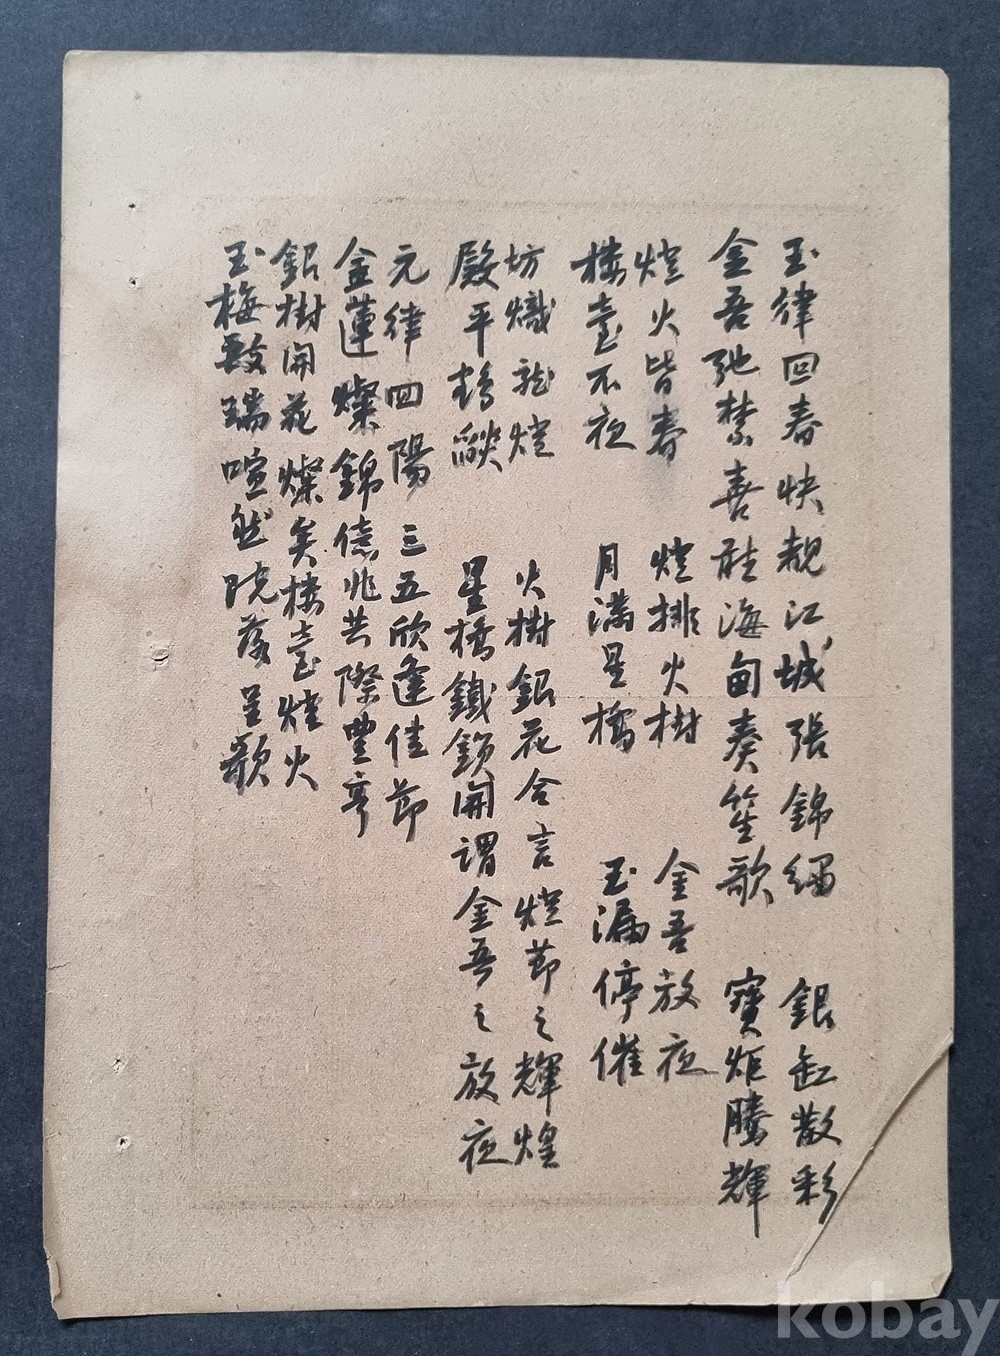 玉律回春快覩江城張錦繡 銀缸散彩
金吾弛禁喜聽海甸奏笙歌 寶炬騰輝
燈火皆春 燈排火樹 金吾放夜
楼臺不夜 月滿星橋 玉漏停催
坊熾龍燈 火樹銀花合言燈節之輝煌
殿平鶴燄 星橋鐵鎖開謂金吾之放夜
元律回陽三五欣逢佳節
金蓮燦錦億兆共際豐亨
銀樹開花燦矣楼臺燈火
玉梅報瑞喧然院落笙歌
kobay